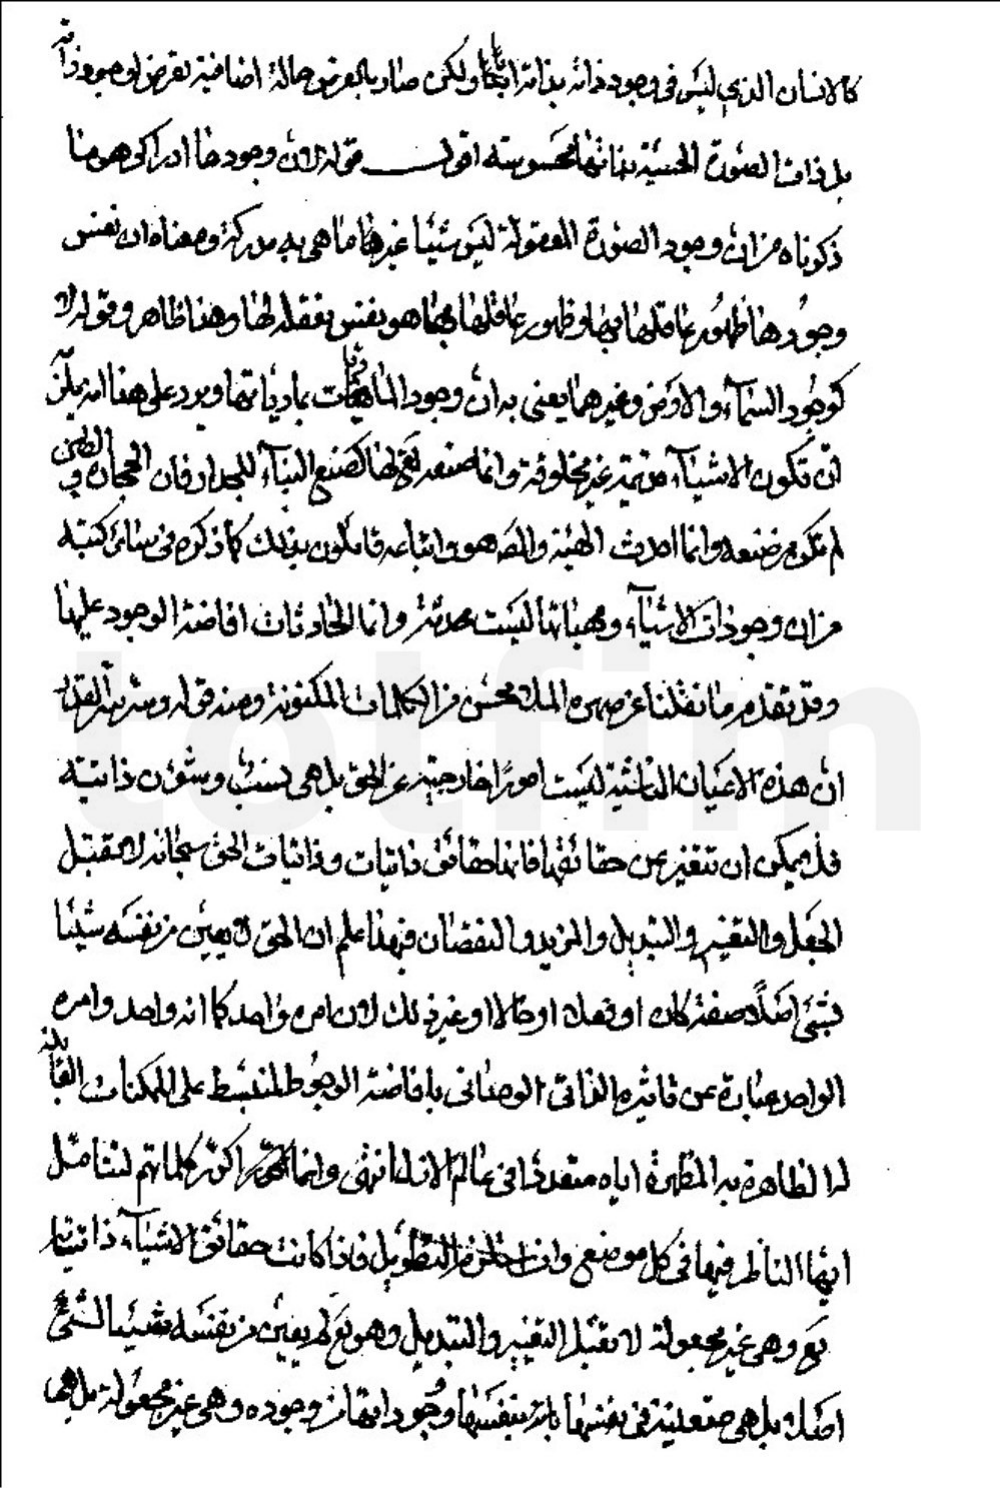 كالانسان الذي ليس في وجود ذاته بذاته ابا ولكن صار بالعرض حالة اضافية تعرض لوجود ذاته
بل ذات الصورة الحسية بذاتها محسوسة اقول قوله لان وجودها ادراكي هو ما
ذكرناه من ان وجود الصورة المعقولة ليس شيئا غيرها ما هي به مدركة ومعناه ان نفس
وجودها ظهور عاقلها بها وظهور عاقلها بها هو نفس تعقله لها وهذا ظاهر وقوله لا
كوجود السماء والارض وغيرهما يعني به ان وجود الماديات بمادياتها ويرد على هذا انه يلزم
ان تكون الاشياء قديمة غير مخلوقة وانما صنعه تع لها كصنع البناء للجدار فان الحجارة والطين
لم تكن من صنعه وانما احدث الهيئة والمص هو واتباعه قائلون بذلك كما ذكره في سائر كتبه
من ان وجودات الاشياء ومهياتها ليست محدثة وانما الحادثات افاضة الوجود عليها
وقد تقدم ما نقلنا عن صهره الملا محسن من الكلمات المكنونة ومنه قوله وسر سر القدر
ان هذه الاعيان الثابتة ليست امورا خارجة عن الحق بل هي نسب وشؤن ذاتية
فلا يمكن ان تتغير عن حقائقها فانها حقائق ذاتيات وذاتيات الحق سبحانه لا تقبل
الجعل والتغيير والتبديل والمزيد والنقصان فبهذا علم ان الحق لا يعين من نفسه شيئا
لشئ اصلا صفة كان او فعلا او حالا او غير ذلك لان امره واحد كما انه واحد وامره
الواحد عبارة عن تاثيره الذاتي الوحداني بافاضة الوجود المنبسط على الممكنات القابلة
له الظاهرة به المظهرة اياه متعددا في عالم الازل انتهى وانما اكرر كلماتهم لتتامل
ايها الناظر فيها في كل موضع وان التطويل فاذا كانت حقائق الاشياء ذاتيات
تع وهي غير مجعولة لا تقبل التغيير والتبديل وهو تع لم يعين من نفسه شيئا لشئ
اصلا بل هي متعينة في نفسها بنفسها وجوداتها من وجوده وهي غير مجعولة بل